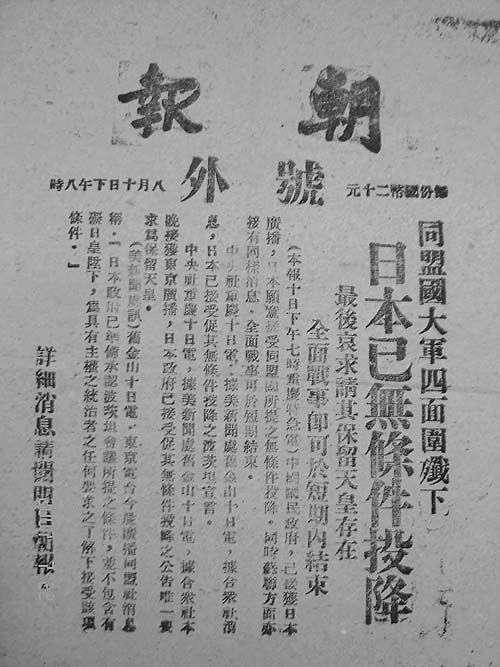 朝報
號外
每份國幣二十元
八月十日下午八時
同盟國大軍四面圍殲下
日本已無條件投降
最後哀求請其保留天皇存在
全面戰事即可於短期內結束
(本報十日下午七時重慶特急電)中國國民政府,已接獲日本
廣播,日本願意接受同盟國所提之無條件投降。同時蘇聯方面亦
接有同樣消息。全面戰事可於短期結束。
中央社重慶十日電,據美新聞處舊金山十日電,據合衆社消
息,日本已接受促其無條件投降之波茨坦宣言。
中央社重慶十日電,據美新聞處舊金山十日電,據合衆社本
晚接獲東京廣播,日本政府已接受促其無條件投降之公告唯一要
求爲保留天皇。
(美新聞處訊)舊金山十日電,東京電台今晨廣播同盟社消息
稱,「日本政府已準備承認波茨坦會議所提之條件,並不包含有
礙日皇陛下,爲具有主權之統治者之任何要求之了解下接受該項
條件。」
詳細消息請閱明日朝報。